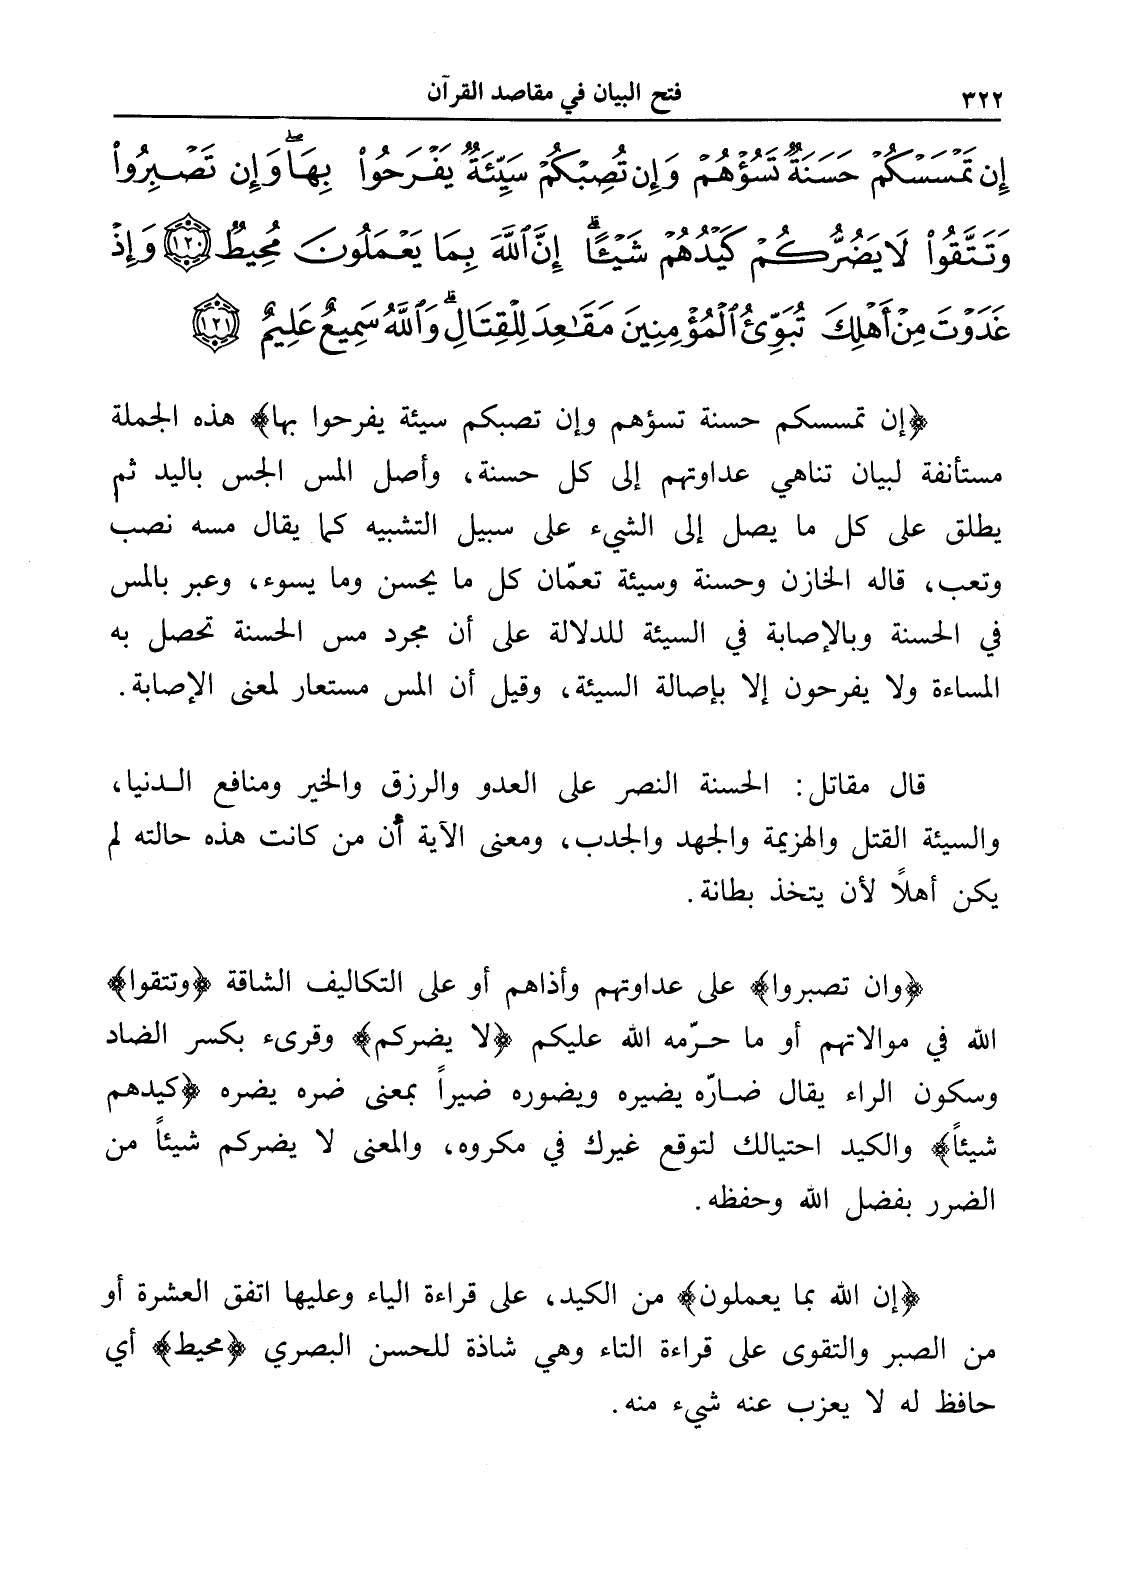 ٣٢٢ فتح البيان في مقاصد القرآن
إِن تَمْسَسْكُمْ حَسَنَةٌ تَسُؤْهُمْ وَإِن تُصِبْكُمْ سَيِّئَةٌ يَفْرَحُوا۟ بِهَا ۖ وَإِن تَصْبِرُوا۟
وَتَتَّقُوا۟ لَا يَضُرُّكُمْ كَيْدُهُمْ شَيْـًٔا ۗ إِنَّ ٱللَّهَ بِمَا يَعْمَلُونَ مُحِيطٌ ١٢٠ وَإِذْ
غَدَوْتَ مِنْ أَهْلِكَ تُبَوِّئُ ٱلْمُؤْمِنِينَ مَقَـٰعِدَ لِلْقِتَالِ ۗ وَٱللَّهُ سَمِيعٌ عَلِيمٌ ١٢١
﴿إن تمسسكم حسنة تسؤهم وإن تصبكم سيئة يفرحوا بها﴾ هذه الجملة
مستأنفة لبيان تناهي عداوتهم إلى كل حسنة، وأصل المس الجس باليد ثم
يطلق على كل ما يصل إلى الشيء على سبيل التشبيه كما يقال مسه نصب
وتعب، قاله الخازن وحسنة وسيئة تعمّان كل ما يحسن وما يسوء، وعبر بالمس
في الحسنة وبالإصابة في السيئة للدلالة على أن مجرد مس الحسنة تحصل به
المساءة ولا يفرحون إلا بإصالة السيئة، وقيل أن المس مستعار لمعنى الإصابة.
قال مقاتل: الحسنة النصر على العدو والرزق والخير ومنافع الـدنيا،
والسيئة القتل والهزيمة والجهد والجدب، ومعنى الآية أن من كانت هذه حالته لم
يكن أهلاً لأن يتخذ بطانة.
﴿وان تصبروا﴾ على عداوتهم وأذاهم أو على التكاليف الشاقة ﴿وتتقوا﴾
الله في موالاتهم أو ما حـرّمه الله عليكم ﴿لا يضركم﴾ وقرىء بكسر الضاد
وسكون الراء يقال ضـارّه يضيره ويضوره ضيراً بمعنى ضره يضره ﴿كيدهم
شيئاً﴾ والكيد احتيالك لتوقع غيرك في مكروه، والمعنى لا يضركم شيئاً من
الضرر بفضل الله وحفظه.
﴿إن الله بما يعملون﴾ من الكيد، على قراءة الياء وعليها اتفق العشرة أو
من الصبر والتقوى على قراءة التاء وهي شاذة للحسن البصري ﴿محيط﴾ أي
حافظ له لا يعزب عنه شيء منه.